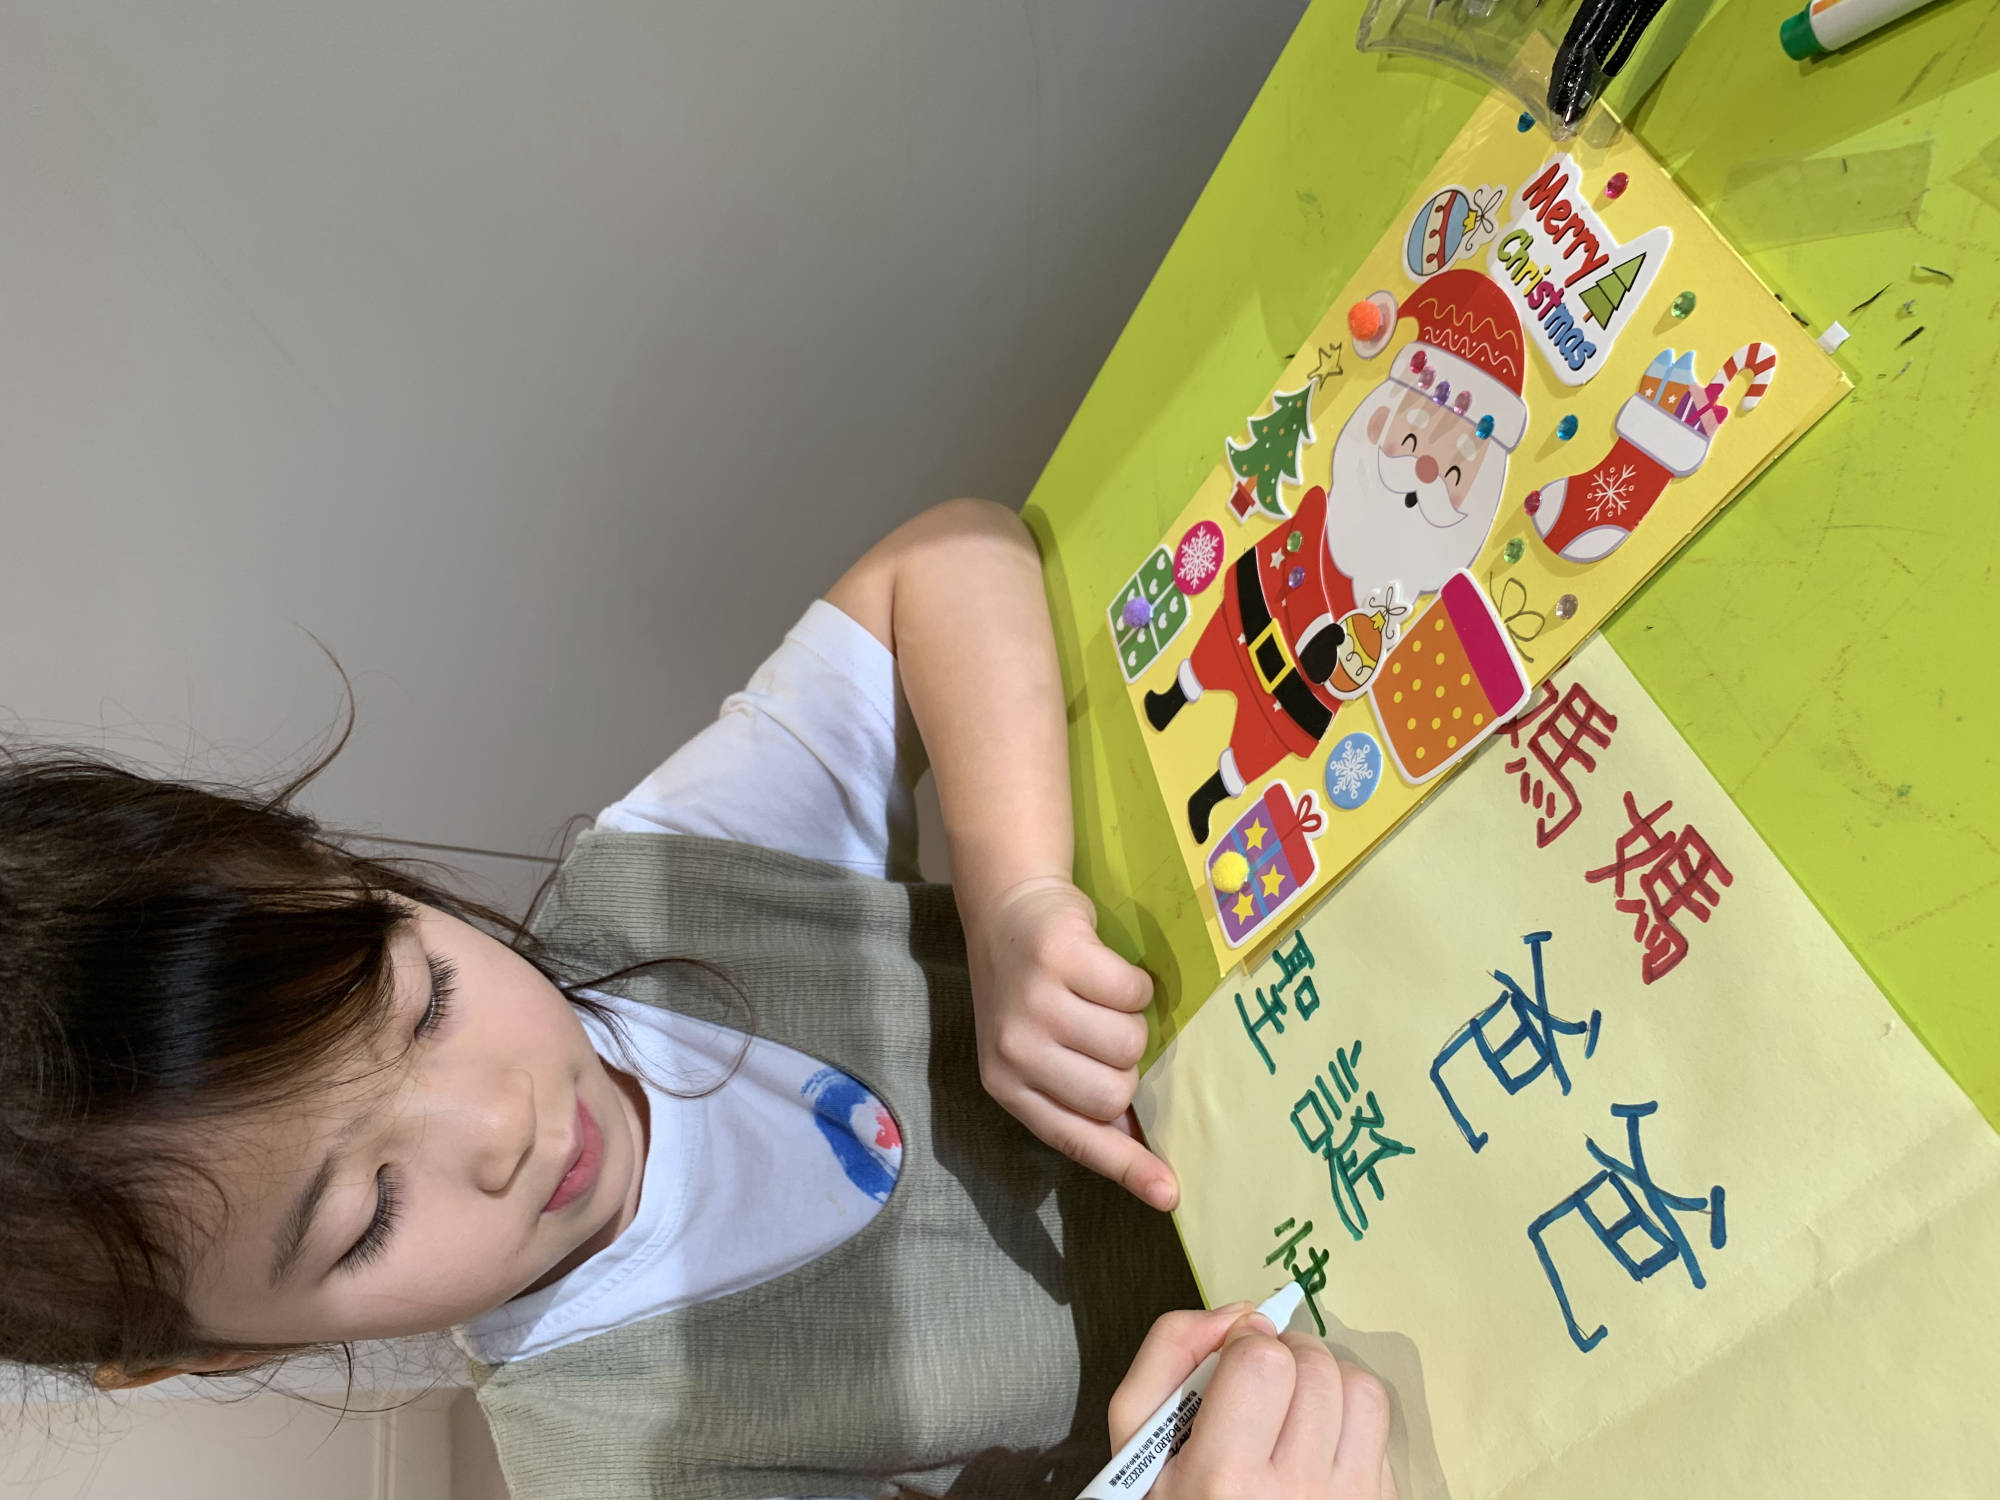 Merry
Christmas
媽媽
爸爸
聖誕快
WHITE BOARD MARKER